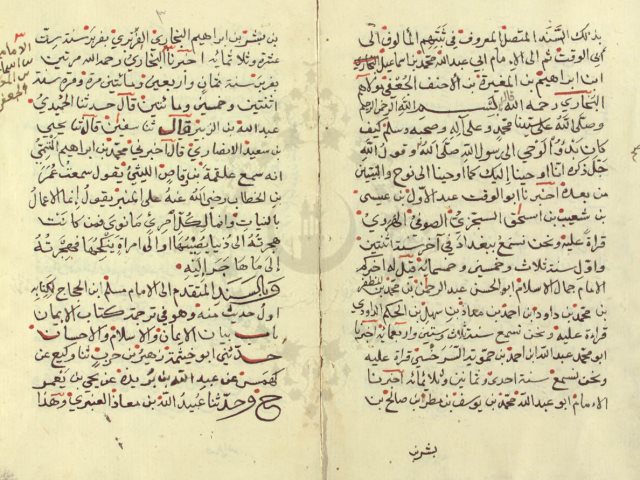 بذلك السند المتصل المعروف في ثبتهم المألوف الى
أبي الوقت ثم الى الامام ابي عبد الله محمد بن اسماعيل البخاري
ابن ابراهيم بن المغيرة بن الأحنف الجعفي مولاهم
البخاري رحمه الله قال بسم الله الرحمن الرحيم
وصلى الله على نبينا محمد وعلى آله وصحبه وسلم كيف
كان بدؤ الوحي الى رسول الله صلى الله وقول الله
جل ذكره انا اوحينا اليك كما اوحينا الى نوح والنبيين
من بعده أخبرنا أبو الوقت عبد الأول بن عيسى
بن شعيب بن اسحق السجزي الصوفي الهروي
قراءة عليه ونحن نسمع ببغداد في آخر سنة اثنتين
واول سنة ثلاث وخمسين وخمسمائة قيل له اخبركم
الامام جمال الاسلام ابو الحسن عبد الرحمن بن محمد بن المظفر
بن محمد بن داود بن احمد بن معاذ بن سهل بن الحكم الداودي
قراءة عليه ونحن نسمع سنة ثلاث وستين واربعمائة اخبرنا
ابو محمد عبد الله بن احمد بن حمويه السرخسي قراءة عليه
ونحن نسمع سنة احدى وثمانين وثلاثمائة اخبرنا
الامام ابو عبد الله محمد بن يوسف بن مطر بن صالح بن
بشر بن
٣
بن بشر بن ابراهيم البخاري الفربري بفربر سنة ست
عشرة وثلاثمائة اخبرنا البخاري رحمه الله مرتين
بفربر سنة ثمان وأربعين ومائتين مرة ومرة سنة
اثنتين وخمسين ومائتين قال حدثنا الحميدي
عبد الله بن الزبير قال ثنا سفين قال ثنا يحيى
بن سعيد الانصاري قال اخبرني محمد بن ابراهيم التيمي
انه سمع علقمة بن وقاص الليثي يقول سمعت عمر
بن الخطاب رضي الله عنه على المنبر يقول إنما الاعمال
بالنيات وانما لكل امرئ ما نوى فمن كانت
هجرته الى دنيا يصيبها او الى امراة ينكحها فهجرته
إلى ما هاجر اليه
وبالسند المتقدم الى الامام مسلم ابن الحجاج لكتابه
اول حديث منه وهو في ترجمة كتاب الايمان
باب بيان الايمان والاسلام والاحسان
حدثني ابو خيثمة زهير بن حرب ثنا وكيع عن
كهمس عن عبد الله بن بريدة عن يحيى بن يعمر
ح وحدثنا عبيد الله بن معاذ العنبري وهذا
٣
الامام